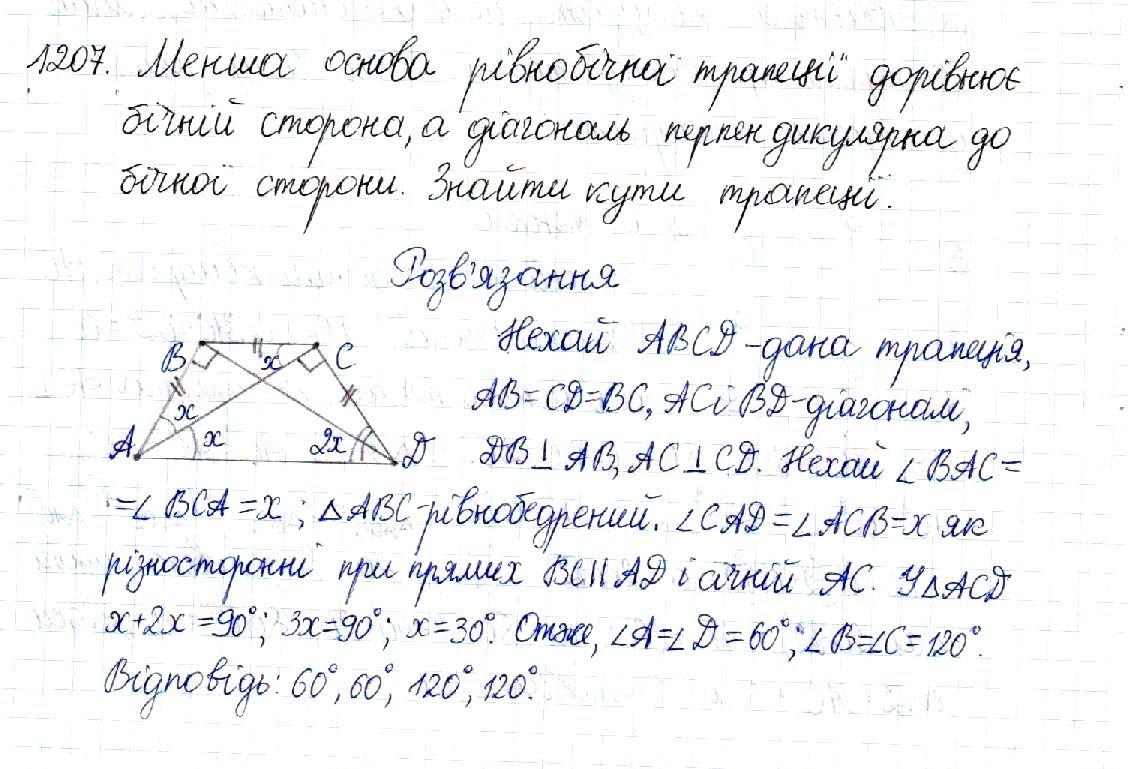 1207. Менша основа рівнобічної трапеції дорівнює
бічній сторона, а діагональ перпендикулярна до
бічної сторони. Знайти кути трапеції.
Розв'язання
Нехай ABCD - дана трапеція,
AB = CD = BC, AC і BD - діагоналі,
DB ⊥ AB, AC ⊥ CD. Нехай ∠BAC =
= ∠BCA = x; △ABC - рівнобедрений. ∠CAD = ∠ACB = x як
різносторонні при прямих BC || AD і січній AC. У △ACD
x + 2x = 90°; 3x = 90°; x = 30°. Отже, ∠A = ∠D = 60°; ∠B = ∠C = 120°.
Відповідь: 60°, 60°, 120°, 120°.
B x C
x
A x 2x D